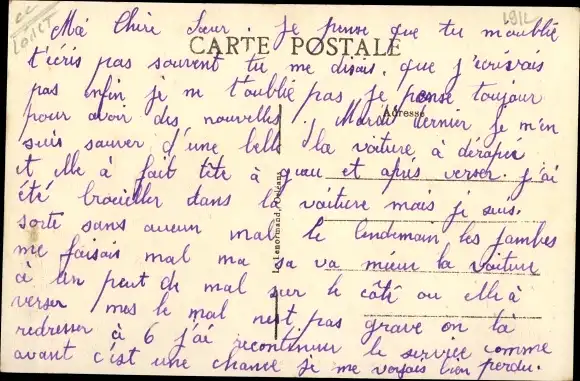 1912
LOIRET
Ma Chère Sœur. Je pense que tu m'oublie
CARTE POSTALE
t'écris pas souvent tu me disais. que j'écrivais
pas enfin je ne t'oublie pas je pense toujour
Adresse
pour avoir des nouvelles. Mardi dernier je m'en
suis sauver d'une belle la voiture à dérapée
et elle à fait tête à queau et après verser. j'ai
été broueiller dans la voiture mais je suis.
sorte sans aucun mal. le lendemain, les jambes
me faisais mal ma sa va mieux la voiture
à un peut de mal sur le côté ou elle à
verser mes le mal nest pas grave on là
redresser à 6 j'ai recontinuer le service comme
avant c'est une chance je me voyais bien perdu.
Lenormand, Orléans